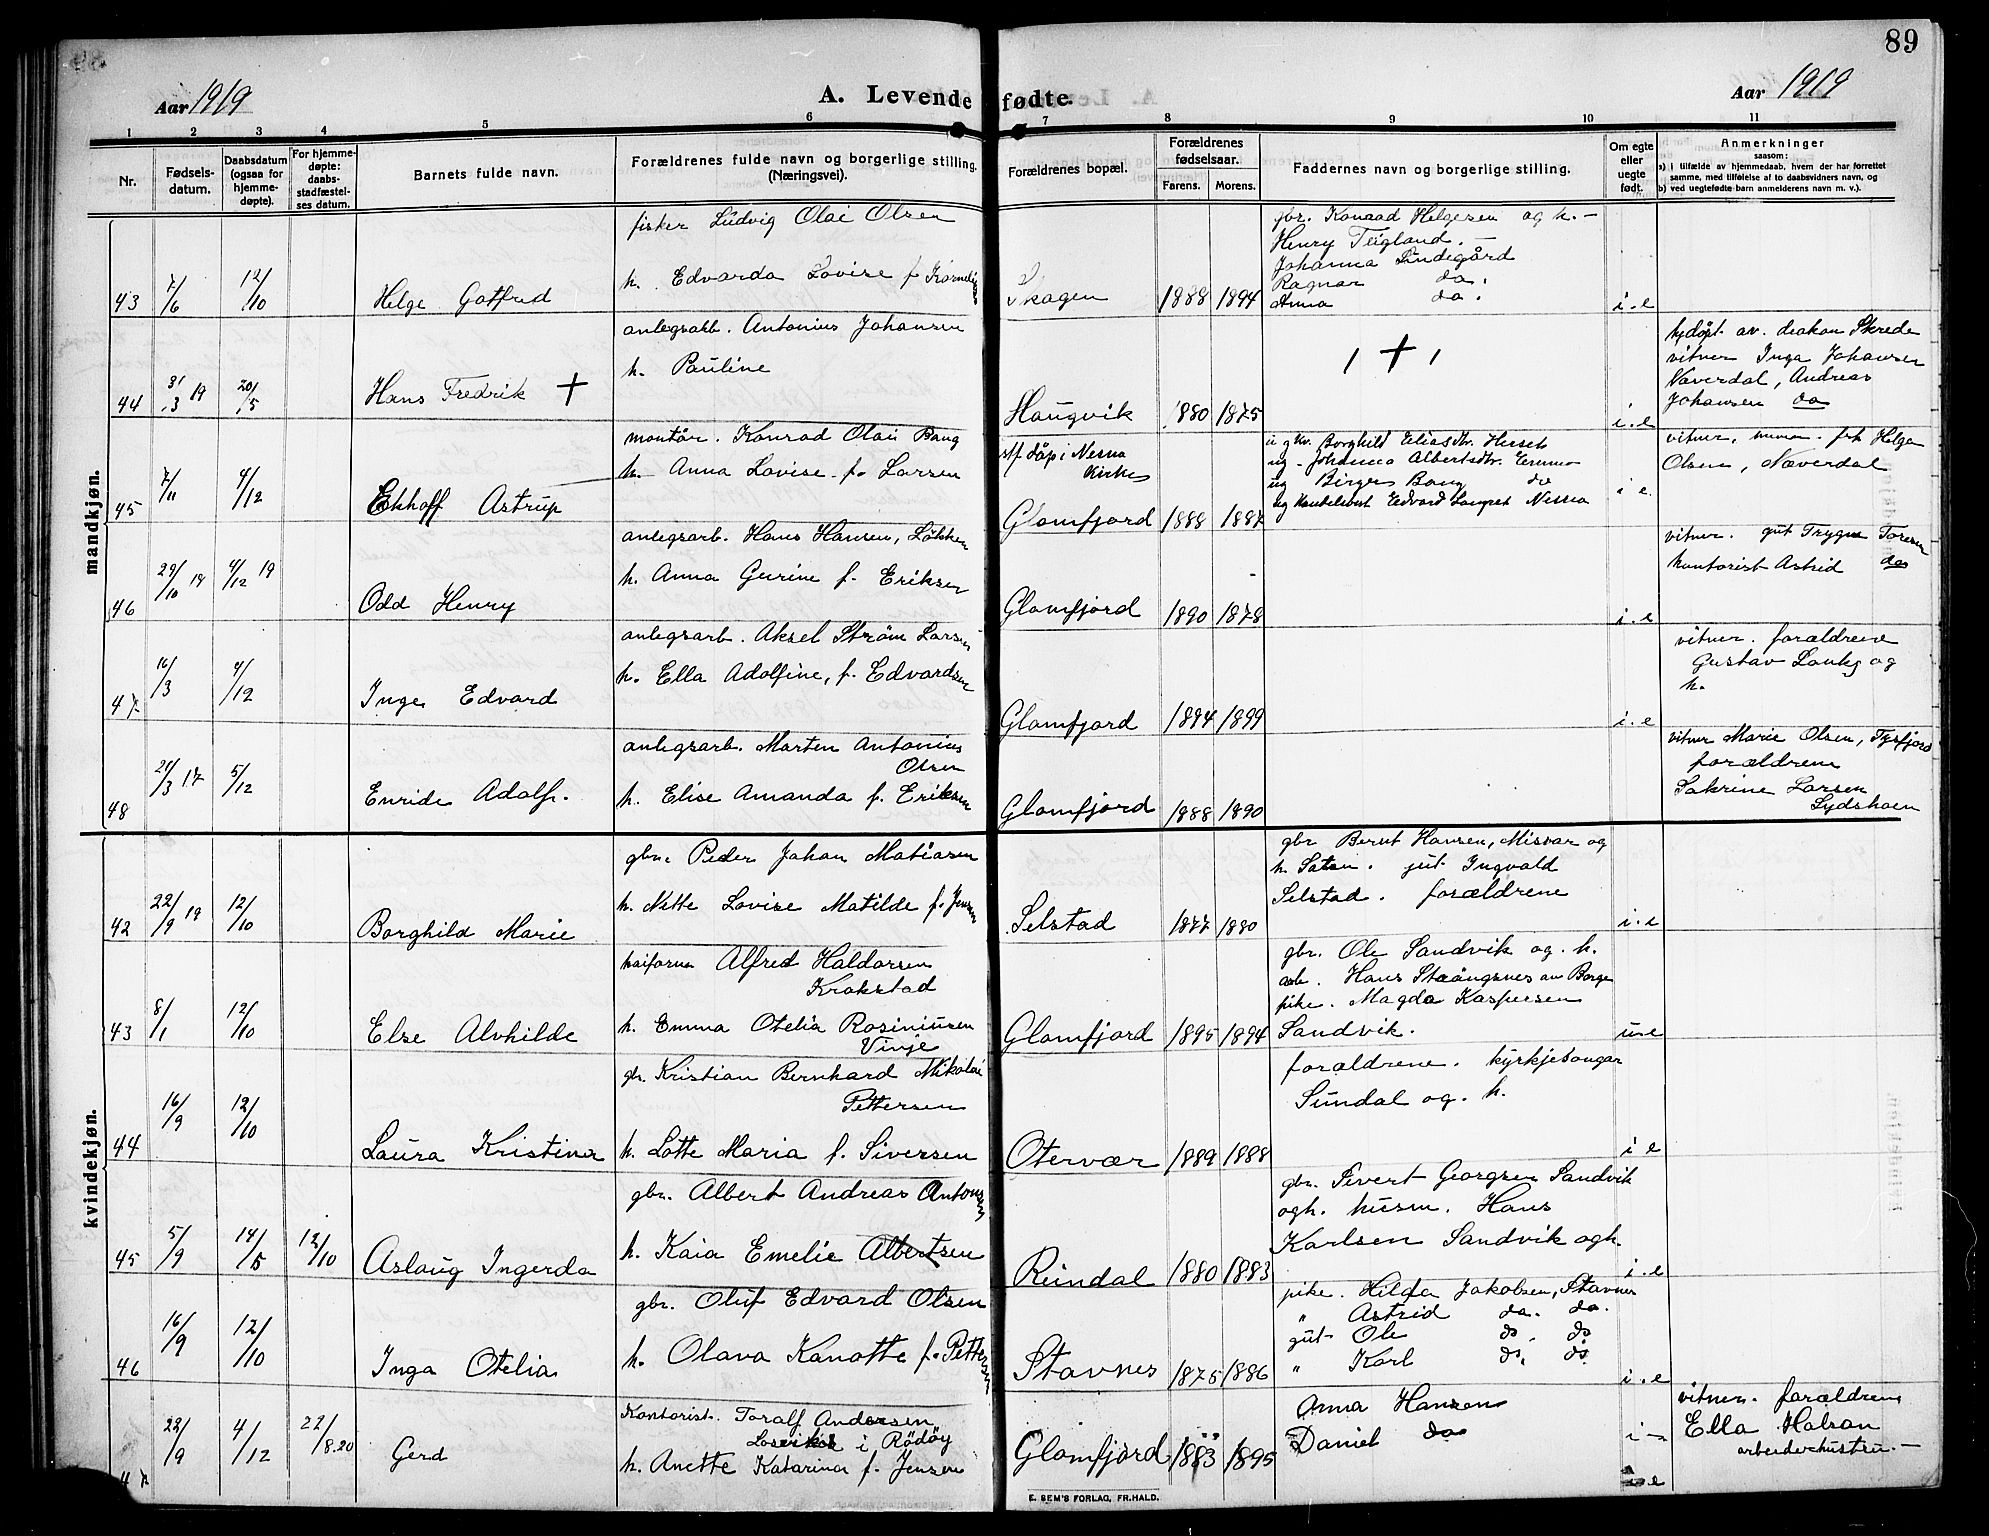 89
Aar 1919
A. Levende fødte.
Aar 1919
1 2 3 4 5 6 7 8 9 10 11
Nr.
Fødsels-
datum.
Daabsdatum
(ogsaa for
hjemme-
døpte).
For hjemme-
døpte:
daabs-
stadfæstel-
ses datum.
Barnets fulde navn.
Forældrenes fulde navn og borgerlige stilling.
(Næringsvei).
Forældrenes bopæl.
Forældrenes
fødselsaar.
Farens. Morens.
Faddernes navn og borgerlige stilling.
Om egte
eller
uegte
født.
Anmerkninger
saasom:
a) i tilfælde av hjemmedaab, hvem der har forrettet
samme, med tilføielse af to daabsvidners navn, og
b) ved uegtefødte barn anmelderens navn m. v.).
mandkjøn.
fisker Ludvig Olai Olsen
h. Edvarda Lovise f.
43 7/6 12/10 Helge Gotfred
Skagen 1888 1894
gbr. Konrad Helgesen og h. -
Henry Teigland. -
Johanna Lindegård
Ragnar do.
Anna do.
i. e
anlegsarb. Antonius Johansen
h. Pauline
44 31/3 19 20/5 Hans Fredrik +
Haugvik 1880 1875
+
i. e
hjdøpt av. diakon Skrede
vitner Inga Johansen
Naverdal, Andreas
Johansen do
montør. Konrad Olai Bang
h. Anna Lovise f. Larsen
45 7/11 4/12 Ekhoff Astrup
stf dåp i Nesna
Kirke
Glomfjord 1888 1887
Borghild Eliasdtr. Herset
ug - Johanna Albertsdtr.
ug Birger Bang do
Edvard Nesna
i e.
vitner, Helga
Olsen, Næverdal
anlegsarb. Hans Hansen, Løkken
h. Anna Gurine f. Eriksen
46 29/10 18 4/12 19 Odd Henry
Glomfjord 1890 1878
i. e
vitner. gut Trygve Toresen
kontorist Astrid do
anlegsarb. Aksel Strøm Larsen
h. Ella Adolfine, f. Edvardsen
47 16/3 4/12 Inge Edvard
Glomfjord 1894 1899
i. e
vitner. forældrene
Gustav og
h.
anlegsarb. Morten Antonius
Olsen
h. Elise Amanda f. Eriksen
48 21/3 17 5/12 Enride Adolf.
Glomfjord 1888 1890
vitner Marie Olsen, Tysfjord
forældrene
Sakrine Larsen
kvindekjøn.
gbr. Peder Johan Matiasen
h. Nette Lovise Matilde f. Jensen
42 22/9 19 12/10 Borghild Marie
Selstad 1877 1880
gbr Bernt Hansen, Misvær og
h. gut Ingvald
Selstad. forældrene
i. e
Alfred Haldorsen
Krokstad
h. Emma Otelia Rosiniusen
Vinje
43 8/1 12/10 Else Alvhilde
Glomfjord 1895 1894
gbr. Ole Sandvik og. h.
arb. Hans Staångsnes av Borge
pike. Magda Kaspersen
Sandvik.
u e
gbr. Kristian Bernhard Mikolai
Pettersen
h. Lotte Maria f. Siversen
44 16/9 12/10 Laura Kristina
Otervær 1889 1888
forældrene. kyrkjesongar
Sundal og. h.
i e
gbr. Albert Andreas Antonsen
h. Kaia Emelie Albertsen
45 5/9 14/5 12/10 Aslaug Ingerda
Reindal 1880 1883
gbr. Sivert Georgsen Sandvik
ogh. husm. Hans
Karlsen Sandvik ogh.
i. e
gbr. Oluf Edvard Olsen
h. Olava Kanotte f. Pettersen
46 16/9 12/10 Inga Otelia
Stavnes 1875 1886
pike. Hilda Jakobsen, Stavnes
" Astrid do. do.
gut Ole do. do
" Karl do. do
i. e
Kontorist. Toralf Andersen
i Rødøy
h. Anette Katarina f. Jensen
47 22/9 4/12 22/8.20 Gerd
Glomfjord 1883 1895
Anna Hansen
Daniel do
i -
i e
vitner. forældrene
Ella Halsan
arbeiderhustru. -
E. SEM'S FORLAG, FR.HALD.